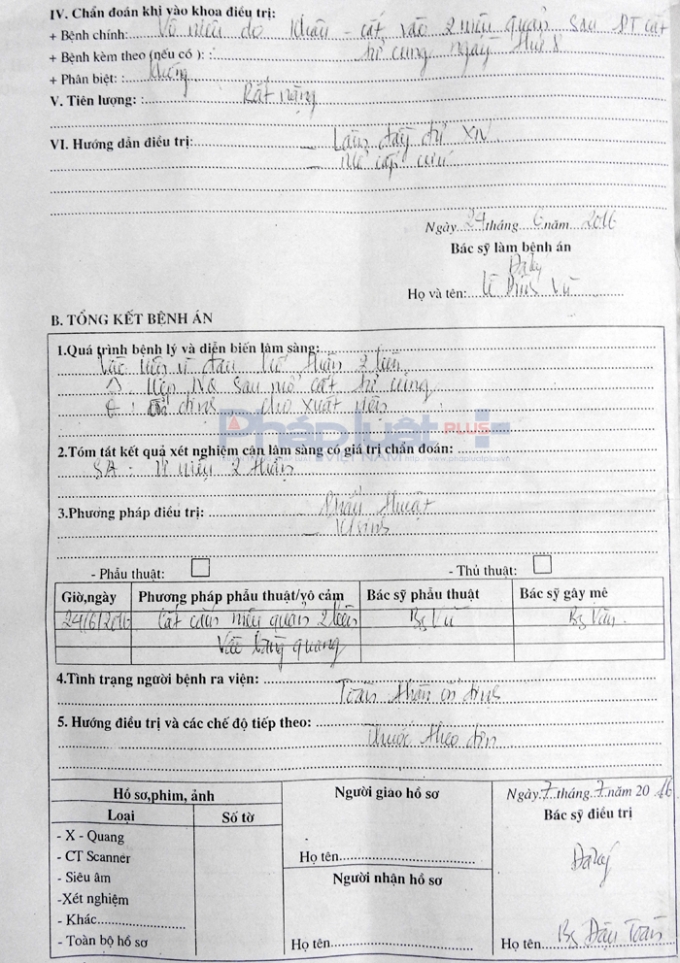 IV. Chẩn đoán khi vào khoa điều trị:
+ Bệnh chính: Vô niệu do khâu - cắt vào 2 niệu quản sau PT cắt
+ Bệnh kèm theo (nếu có ): tử cung ngày thứ 8
+ Phân biệt: : không
V. Tiên lượng: : Rất nặng
VI. Hướng dẫn điều trị: - Làm đầy đủ XN
- Mổ cấp cứu
Ngày 24 tháng 6 năm 2016
Bác sỹ làm bệnh án
Đã ký
Họ và tên: Vũ
B. TỔNG KẾT BỆNH ÁN
1.Quá trình bệnh lý và diễn biến lâm sàng:
đau hố thận 2 bên
Hẹp NQ sau mổ cắt tử cung
ổn định cho xuất viện
Pháp luật PLUS
VIỆT NAM
2.Tóm tắt kết quả xét nghiệm cận lâm sàng có giá trị chẩn đoán:
SA: Ứ niệu 2 thận
3.Phương pháp điều trị: - Phẫu thuật
- K/sinh
- Phẫu thuật: - Thủ thuật:
Giờ,ngày Phương pháp phẫu thuật/vô cảm Bác sỹ phẫu thuật Bác sỹ gây mê
24/6/2016 Cắm niệu quản 2 bên Bs Vũ Bs
Vào bàng quang
4.Tình trạng người bệnh ra viện:
Toàn thân ổn định
5. Hướng điều trị và các chế độ tiếp theo:
Thuốc theo đơn
Hồ sơ,phim, ảnh Người giao hồ sơ Ngày 7 tháng 7 năm 2016
Loại Số tờ Bác sỹ điều trị
- X - Quang
- CT Scanner Họ tên Đã ký
- Siêu âm Người nhận hồ sơ
-Xét nghiệm
- Khác
- Toàn bộ hồ sơ Họ tên Họ tên Bs Đậu Toàn